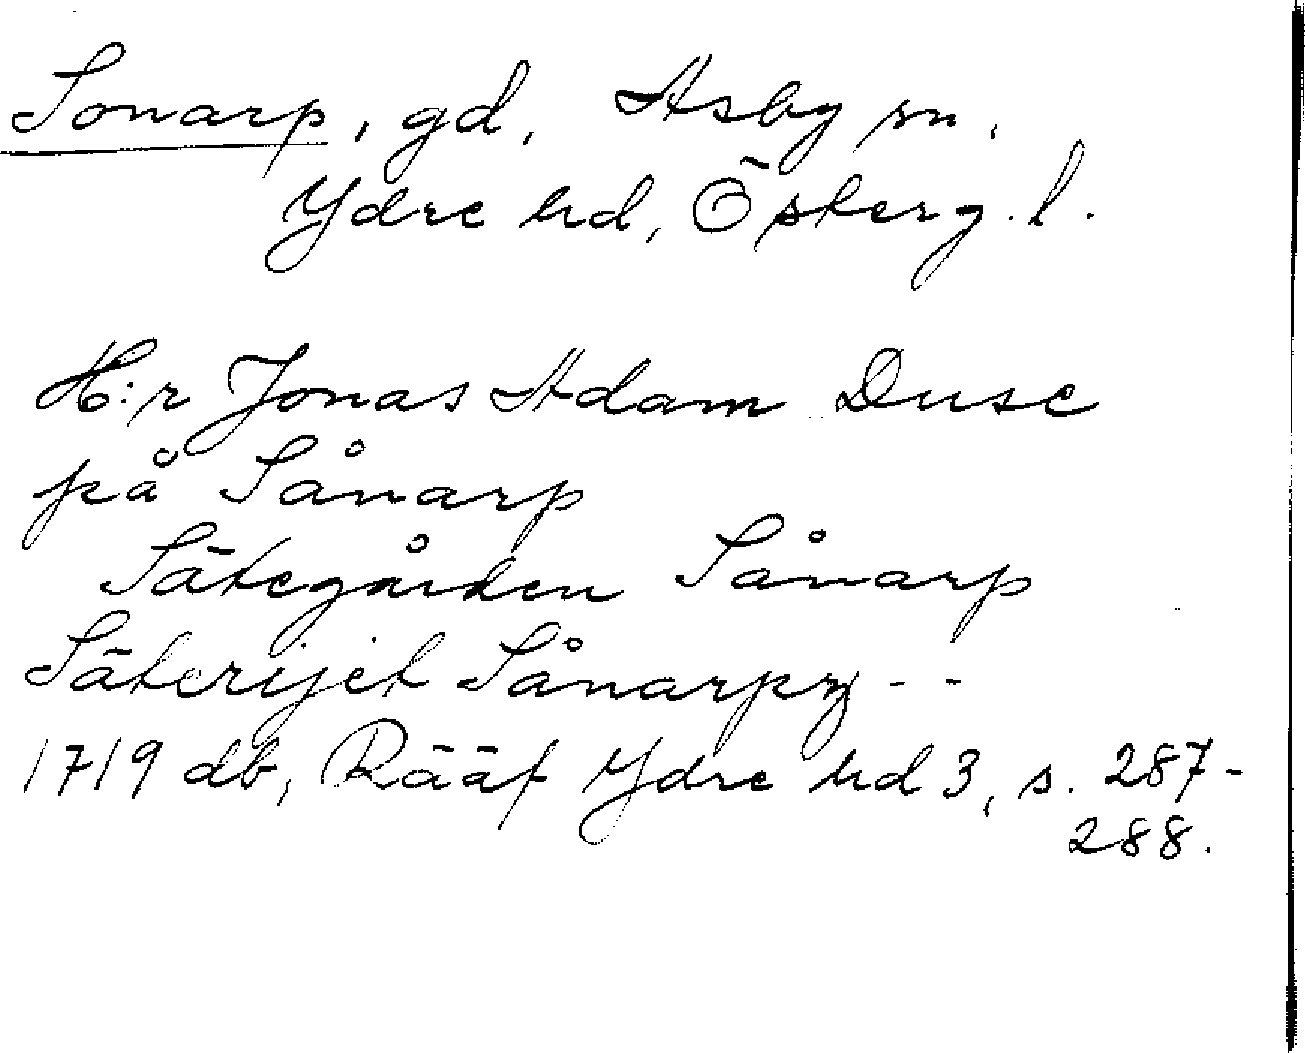 Sonarp, gd, Asby sn,
Ydre hd, Österg. l.
H:r Jonas Adam Duse
på Sånarp
Sätegården Sånarp
Säterijet Sånarpz - -
1719 db, Rääf Ydre hd 3, s. 287-
288.